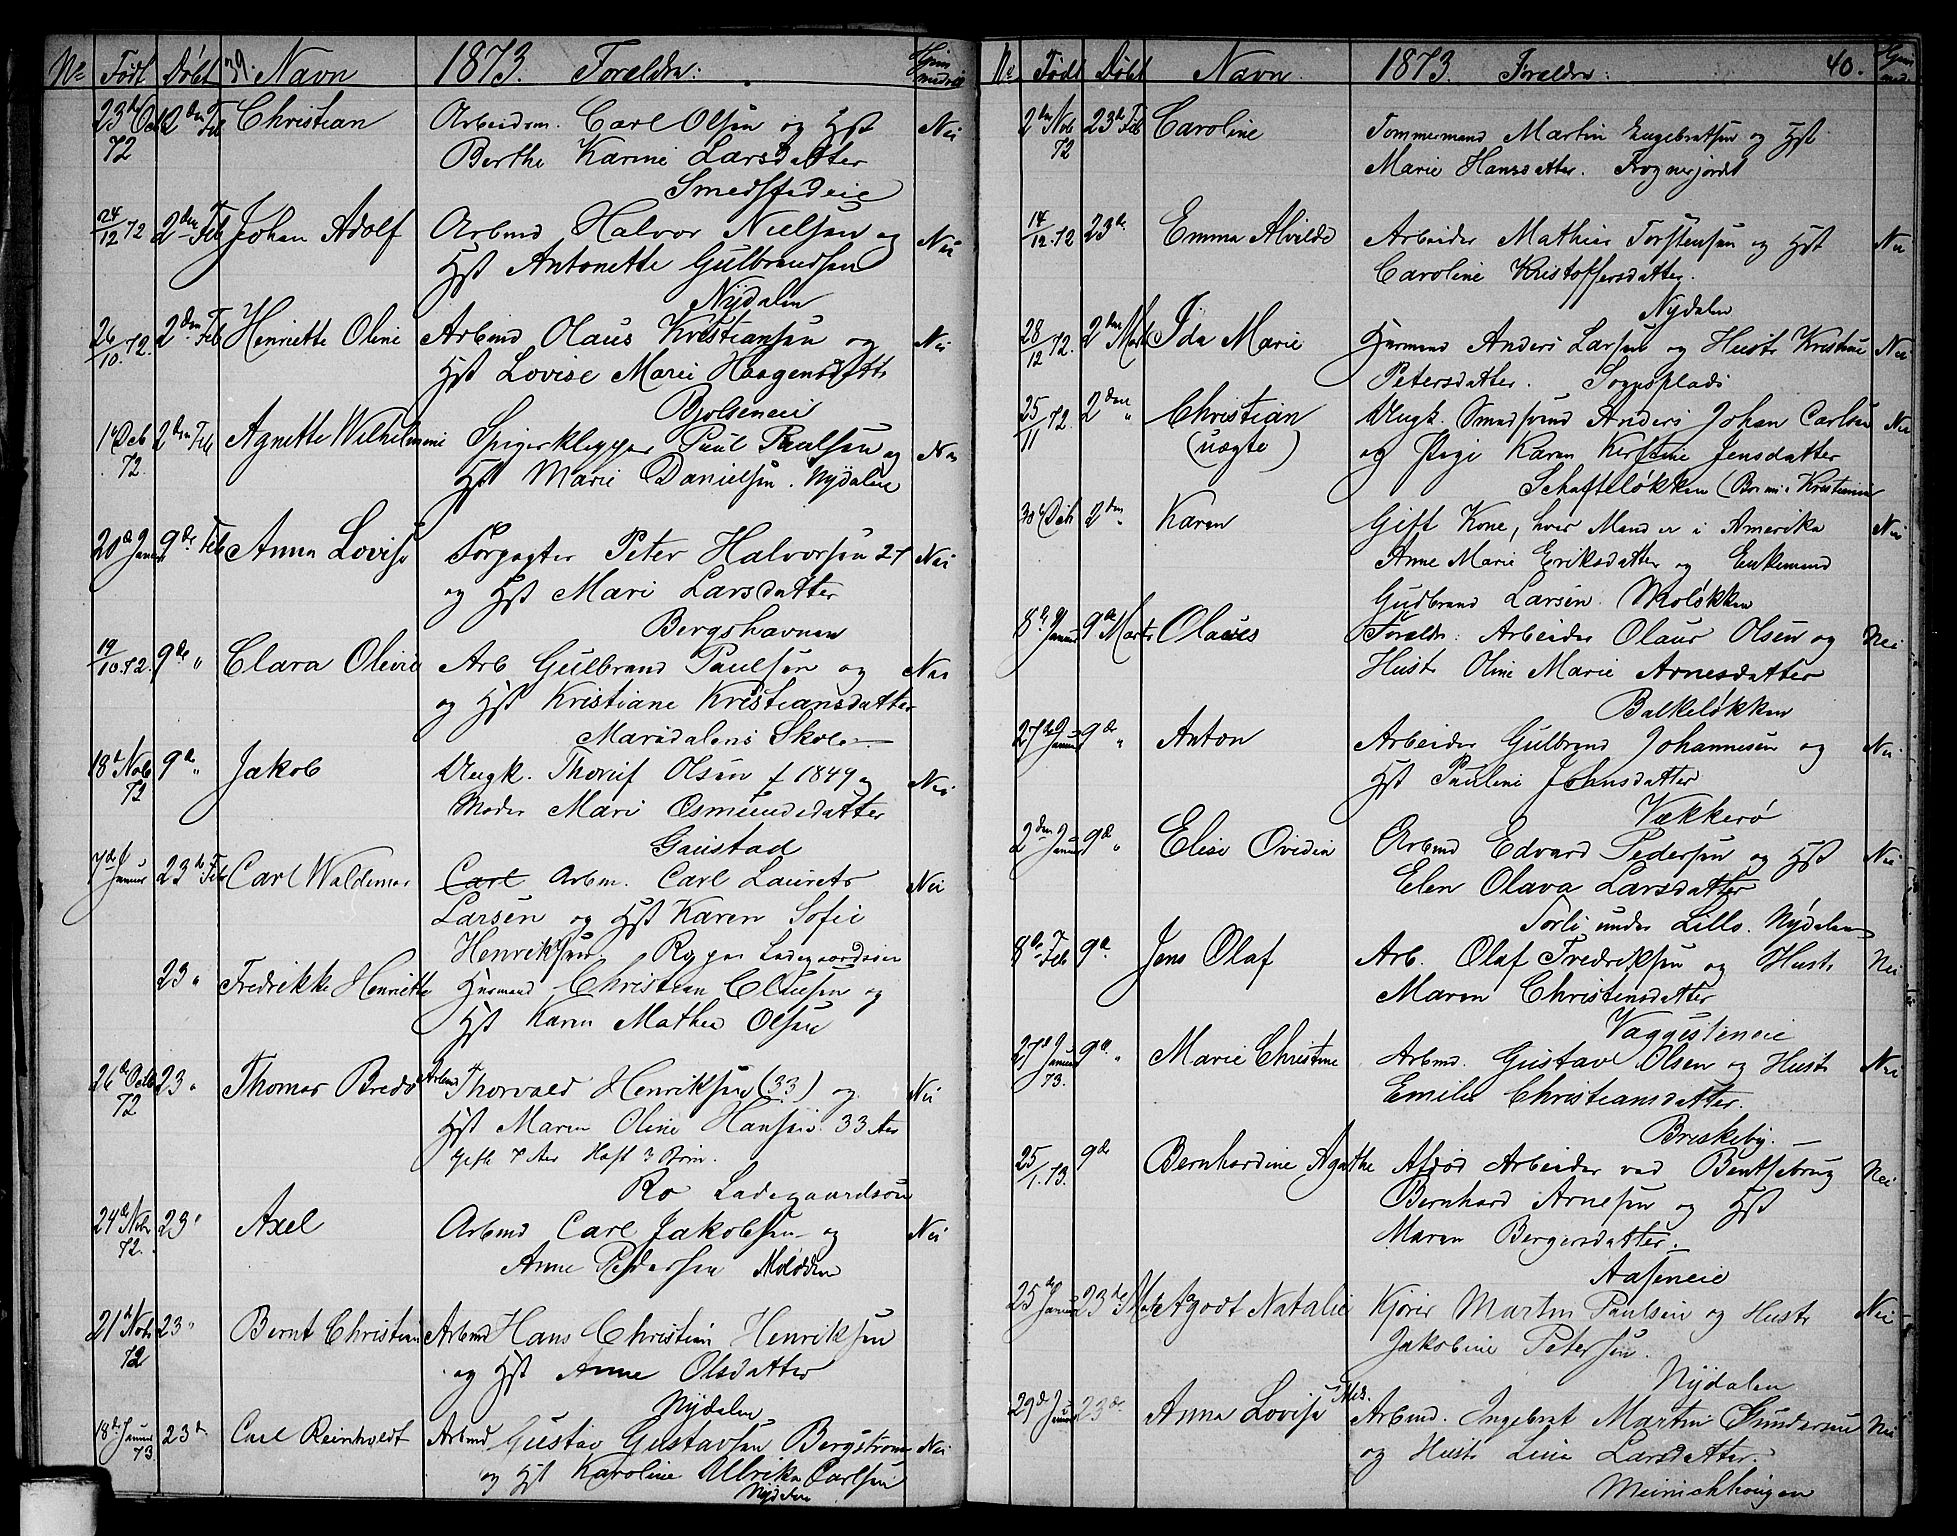 No Født Døbt 39. Navn 1873. Forældre: Hjem
23de Oct 72 2den Feb Christian Arbeidsm. Carl Olsen og Hst Nei
Berthe Karine Larsdatter
Smedstadeie
24/12 72 2den Feb Johan Adolf Arbmd Halvor Nielsen og Nei
Hst Antonette Gulbrandsen
Nydalen
26/10 72. 2den Feb Henriette Oline Arbmd Olaus Kristiansen og Nei
Hst Lovise Marie Haagensdatt
Bjølseneie
1 Deb 72. 2den Feb Agnette Wilhelmine Spigerklepper Paul Paulsen og Nei
Hst Marie Danielsen. Nydalen
20de Janu 9de Feb Anna Lovise Forpagter Peter Halvorsen 27 Nei
og Hst Mari Larsdatter
Bergshavnen
19/10 72. 9de " Clara Olivie Arb Gulbrand Paulsen og Nei
og Hst Kristiane Kristiansdatter
Maridalens Skole
18de Nob 72 9de " Jakob Ungk. Olsen f 1849 og Nei
Moder Mari Osmundsdatter
Gaustad
7de Januar 23de Feb Carl Waldemar Carl Arbm. Carl Laurets Nei
Larsen og Hst Karen Sofie
Henriksen. Ladegaardsøen
23 " Fredrikke Henriette Husmand Christian Clausen og
Hst Karen Mathea Olsen
26de Octb 72 23 " Thomas Bredo Arbmd Thorvald Henriksen (33) og Nei
Hst Maren Oline Hansen 33 Aar
Gift 7 Aar Haft 3 Børn.
Ro Ladegaardsøen
24de Nob 72. 23 " Axel Arbmd Carl Jakobsen og Nei
Anne Pedersen
21de Nob 72 23 " Bernt Christian Arbmd Hans Christian Henriksen
og Hst Anne Olsdatter
Nydalen
18de Januar 73 23de Carl Reinholdt Arbmd Gustav Gustavsen Bergstrøm Nei
og Hst Karoline Ulrika Carlsen
Nydalen
No Født Døbt Navn 1873. Forældre: 40. Hjem
2den Nob 72 23de Feb Caroline Tømmermand Martin Engebretsen og Hst
Marie Hansdatter.
14/12 72 23de Emma Alvilde Arbeider Mathias Torstensen og Hst Nei
Caroline Kristoffersdatter.
Nydalen
28/12 72. 2den Marts Ida Marie Husmand Anders Larsen og Hustr Kristine Nei
Petersdatter. Sognsplads
25/11 72. 2den " Christian Ungk. Smedsvend Anders Johan Carlsen Nei
(uægte) og Pige Karen Kirstine Jensdatter
Schafteløkken (Bor i Kristiania
30 Deb 2den " Karen Gift Kone, hvis Mand er i Amerika Nei
Anne Marie Eriksdatter og Enkemand
Gudbrand Larsen.
8de Januar 9de Marts Olaus Forældr: Arbeider Olaus Olsen og Nei
Hustr Oline Marie Arnesdatter
Balkeløkken
27de Januar 9de " Anton Arbeider Gulbrand Johannesen og Nei
Hst Pauline Johnsdatter
Vækkerø
2den Januar 9de " Elise Ovidia Arbmd Edvard Pedersen og Hst Nei
Elen Olava Larsdatter
Torli under Lille Nydalen
8de Feb 9de Jens Olaf Arb. Olaf Fredriksen og Hustr Nei
Maren Christensdatter
Vaggesteneie
27de Januar 73. 9de " Marie Christine Arbmd. Gustav Olsen og Hustr Nei
Emilie Christiansdatter.
Briskeby.
25/1.73. 9de Bernhardine Agathe Afdød Arbeider ved Bentsebrug Nei
Bernhard Arnesen og Hst
Maren Bergersdatter
Aaseneie
25de Januar 23de Mar Agodt Natalie Kjører Martin Paulsen og Hustr Nei
Jakobine Petersen.
Nydalen
29de Januar 23de Anna Lovise Arbmd. Ingebret Martin Gundersen Nei
og Hustr Lina Larsdatter.
Meinichhougen